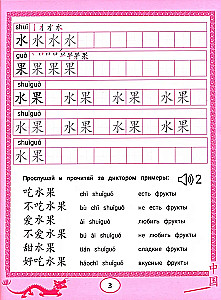 shuǐ
水 水 水 水
guǒ
果 果 果 果
shuǐguǒ
水果 水果 水果 水果
shuǐguǒ
水果 水果 水果 水果
Прослушай и прочитай за диктором примеры: 2
吃水果 chī shuǐguǒ есть фрукты
不吃水果 bù chī shuǐguǒ не есть фрукты
爱水果 ài shuǐguǒ любить фрукты
不爱水果 bú ài shuǐguǒ не любить фрукты
甜水果 tián shuǐguǒ сладкие фрукты
好吃水果 hǎochī shuǐguǒ вкусные фрукты
中国
3